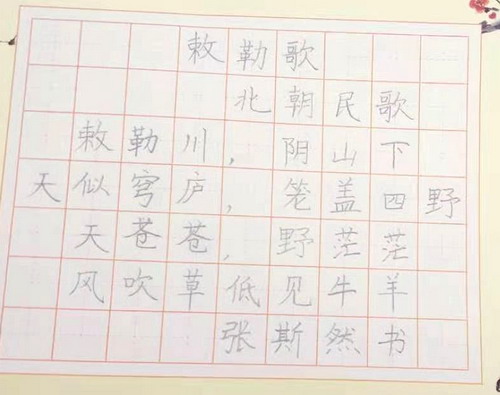 敕勒歌
北朝民歌
敕勒川，阴山下
天似穹庐，笼盖四野
天苍苍，野茫茫
风吹草低见牛羊
张斯然书